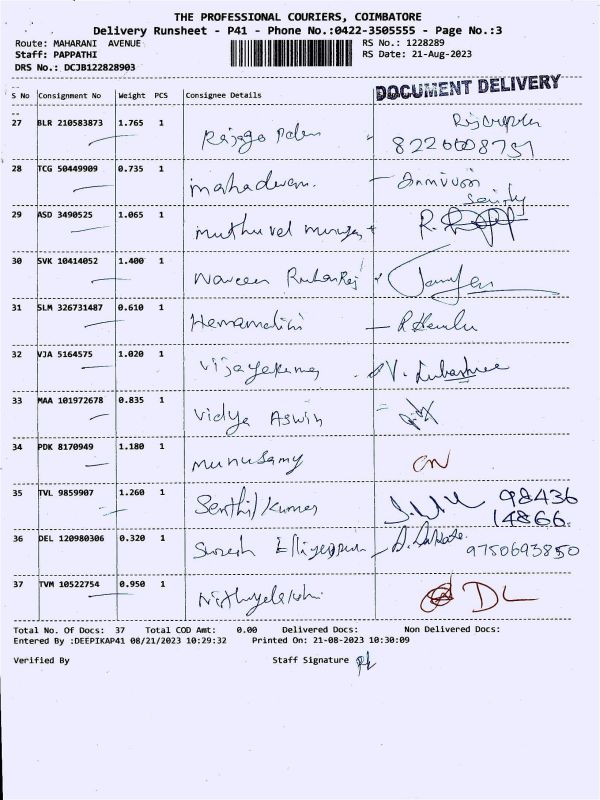 THE PROFESSIONAL COURIERS, COIMBATORE
Delivery Runsheet - P41 - Phone No.:0422-3505555 - Page No.:3
Route: MAHARANI AVENUE RS No.: 1228289
Staff: PAPPATHI RS Date: 21-Aug-2023
DRS No.: DCJB122828903
DOCUMENT DELIVERY
S No Consignment No Weight PCS Consignee Details
27 BLR 210583873 1.765 1
28 TCG 50449909 0.735 1 mahadevan.
29 ASD 3490525 1.065 1 muthuvel
30 SVK 10414052 1.400 1 Naveen
31 SLM 326731487 0.610 1
32 VJA 5164575 1.020 1 Vijayakumar
33 MAA 101972678 0.835 1 Vidya Aswin
34 PDK 8170949 1.180 1 munusamy
35 TVL 9859907 1.260 1 Senthil kumar 98436
14866.
36 DEL 120980306 0.320 1 Suresh 9750693850
37 TVM 10522754 0.950 1 DL
Total No. Of Docs: 37 Total COD Amt: 0.00 Delivered Docs: Non Delivered Docs:
Entered By :DEEPIKAP41 08/21/2023 10:29:32 Printed On: 21-08-2023 10:30:09
Verified By Staff Signature